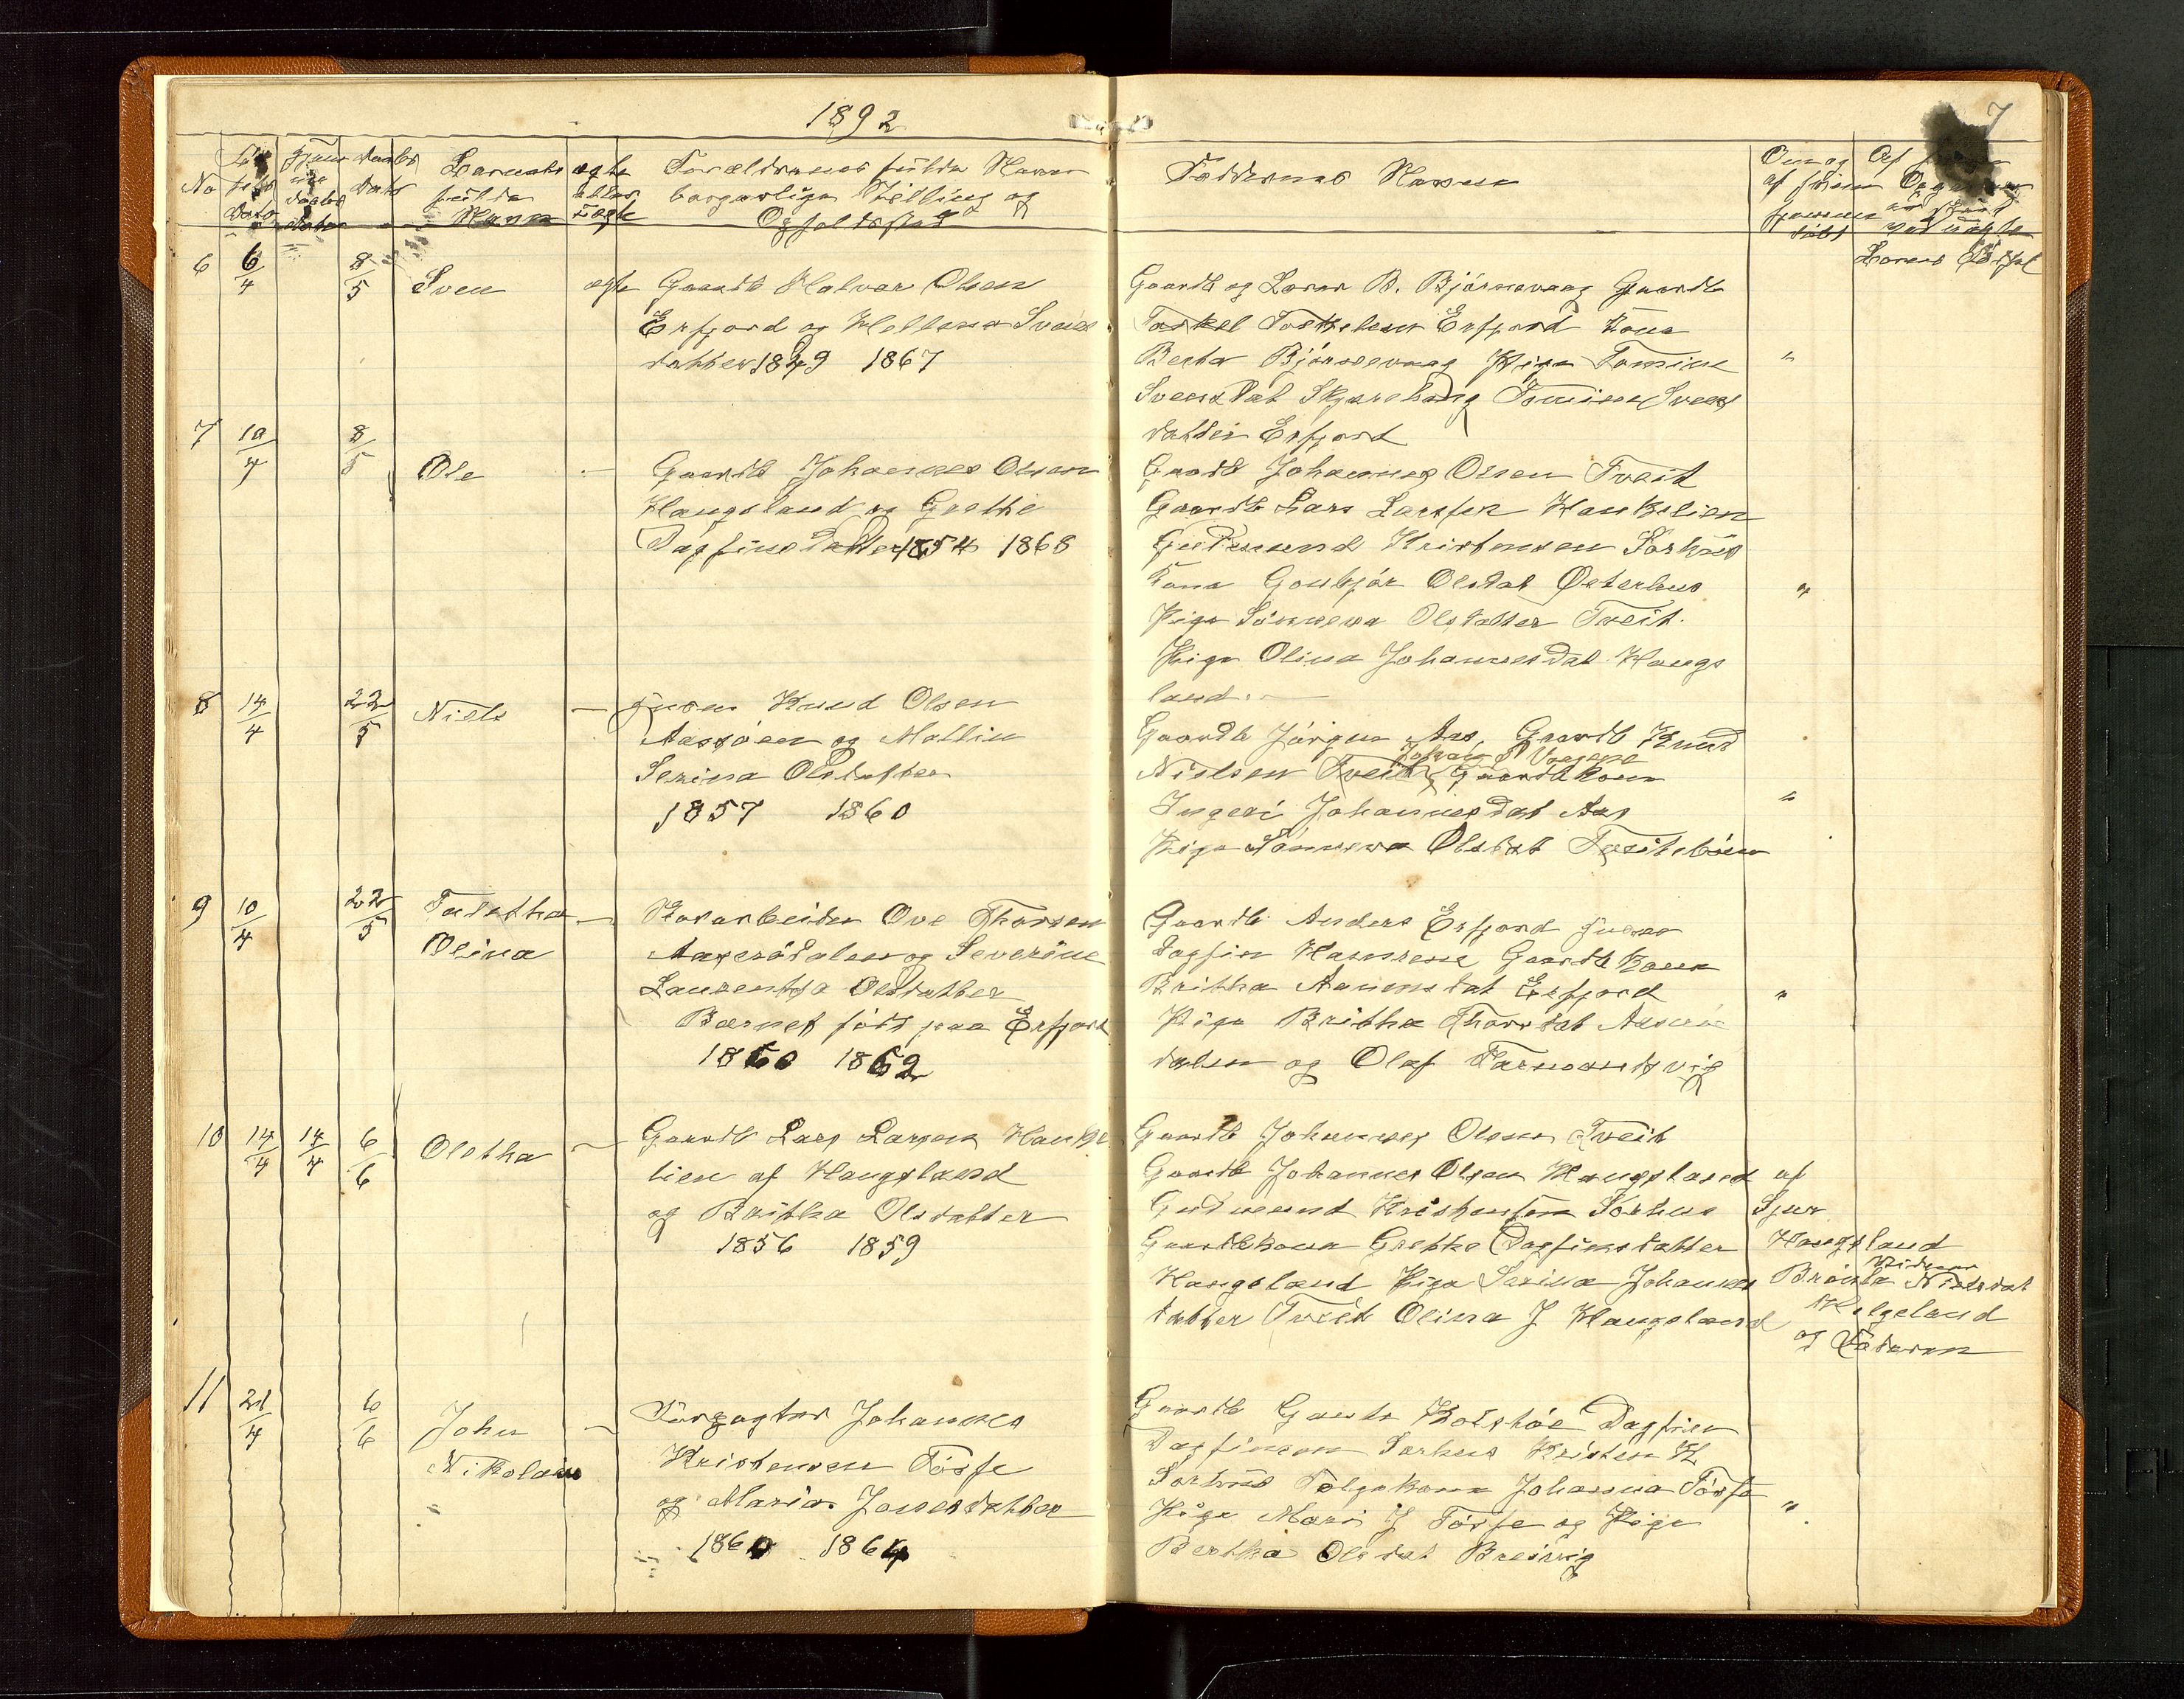 1892
7
No
Dato
Barnets
fulde
Navn
ægte
eller
uægte
Forældrenes fulde Navn
borgerlige Stilling og
Opholdssted
Faddernes Navne
Om og
af hvem
hjemme
døbt
6
6/4
8/5
Sven
ægte
Gaardb Halvor Olsen
Erfjord og Hellena Svens
datter 1849 1867
Gaardb og Lærer B. Bjørnevaag Gaardb
Torkel Torkelsen Erfjord Kona
Berta Bjørnevaag Pige Tomine
Svensdat Skjærehaug Tomine Svens
datter Erfjord
"
7
10/4
8/5
Ole
-
Gaardb Johannes Olsen
Haugsland og Grethe
Dagfinsdatter 1854 1868
Gaardb Johannes Olsen Tveit
Gaardb Lars Larssen Haukelien
Gudmund Kristensen Sørhus
Kona Gonbjør Olsdat Østerhus
Pige Sønneva Olsdatter Tveit.
Pige Olina Johannesdat Haugs
land.
"
8
14/4
22/5
Niels
-
Knud Olsen
og Mallin
Serina Olsdatter
1857 1860
Gaardb Jørgen Aas, Gaardb Knud
Nielsen Tveit Gaardbkone
Ingeri Johannesdat Aas
Pige Sønneva Olsdat Tveitebøen
"
9
10/4
22/5
Olina
-
Ove Thorsen
og Severine
Laurentsa Olsdatter
Barnet født paa Erfjord
1860 1862
Gaardb. Anders Erfjord
Dagfin Hamrene Gaardbkona
Britha Aamundsdat Erfjord
Pige Britha Thorsdat
dalen og Olaf
"
10
14/4
14/4
6/6
Oletha
-
Gaardb Lars Larsen Hauke
lien af Haugsland
og Britha Olsdatter
1856 1859
Gaardb Johannes Olsen Tveit
Gaardb Johannes Olsen Haugsland
Gudmund Kristensen Sørhus
Gaardbkona Grethe Dagfinsdatter
Haugsland Pige Serina Johannes
datter Tveit Olina J Haugsland
af
Haugsland
Nielsdat
Helgeland
og Faderen
11
21/4
6/6
John
Nikolai
-
Forpagter Johannes
Kristensen Tøsse
og Maria Jonesdatter
1860 1864
Gaardb Dagfin
Dagfinsen Sørhus Kristen K
Sørhus Johanna Tøsse
Pige Mari J Tøsse og Pige
Bertha Olsdat Breivig
"